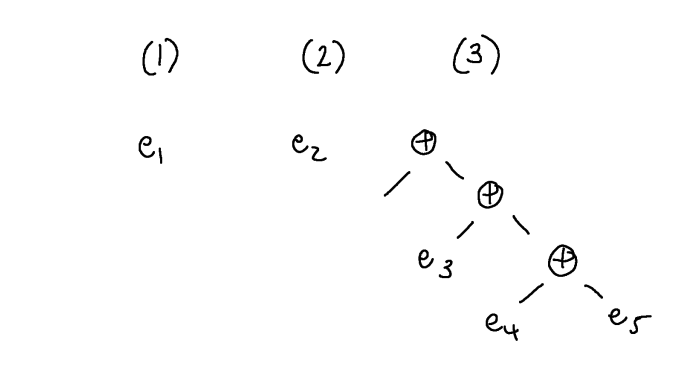 (1) (2) (3)
e₁ e₂ ⊕
⊕
e₃ ⊕
e₄ e₅